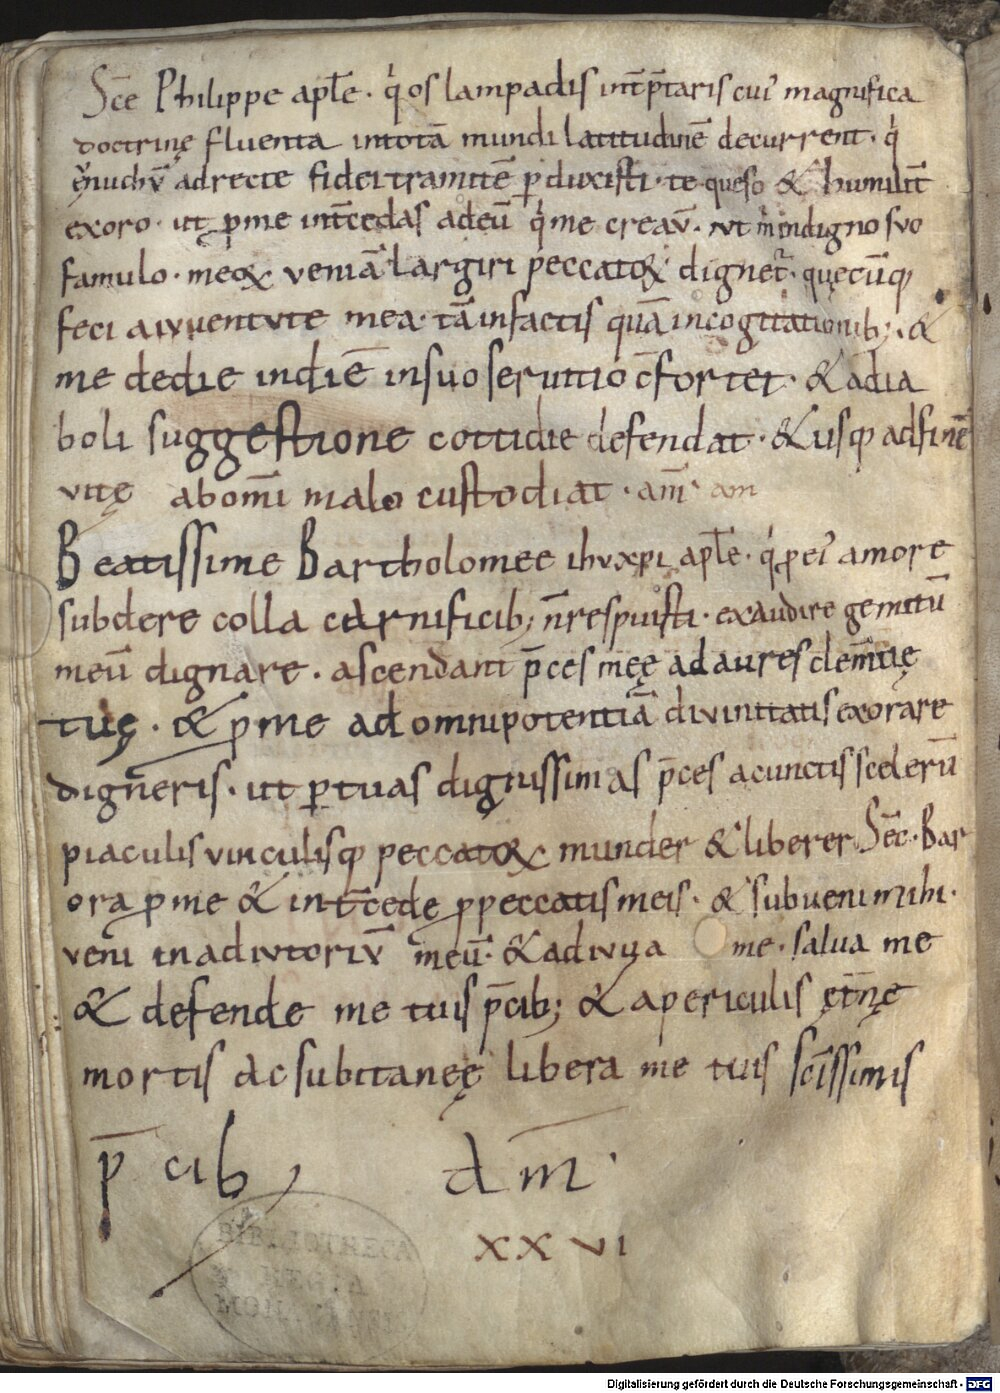 Sc̄e Philippe apłe · qͥ os lampadis int̄p̄taris cuiꝰ magnifica
doctrinę fluenta intotā mundi latitudinē decurrent · qͥ
adrecte fidei tramitē ꝑduxisti · te queso & humilit̄
exoro · ut ꝓme int̄cedas adeū qͥ me creaṽ · ut indigno suo
famulo · meoꝝ veniā largiri peccatoꝝ dignet᷑ · quęcūq;
feci aiuuentute mea · tā infactis quā incogitationib; · &
me dedie indiē insuo seruitio c̄fortet · & adia
boli suggestione cottidie defendat · & usq; adfinē
vitę abom̄i malo custodiat · am̄ am
Beatissime Bartholomee ihuxpi apłe · qͥ ꝓ eiꝰ amore
subdere colla carnificib; n̄ respuisti · exaudire gemitū
meū dignare · ascendant p̄ces męę ad aures clem̄tię
tuę · & ꝓ me ad omnipotentiā divinitatis exorare
digneris · ut ꝑ tuas dignissimas p̄ces acunctis scelerū
piaculis vinculisq; peccatoꝝ munder & liberer Sc̄e · Bar
ora ꝓ me & int̄cede ꝓ peccatis meis · & subueni mihi ·
veni in adiutoriū meū · & adiuva me · salua me
& defende me tuis p̄cib; & apericulis ęt̄nę
mortis ac subitanęę libera me tuis sc̄issimis
p̄cib; am̄ ·
XXVI
BIBLIOTHECA
REGIA
MONACENSIS
Digitalisierung gefördert durch die Deutsche Forschungsgemeinschaft - DFG